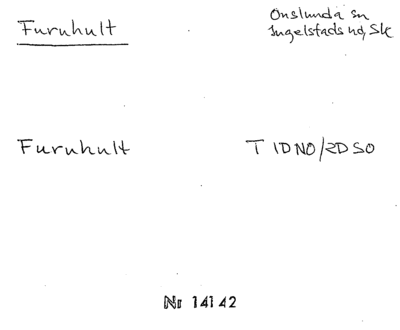 Furuhult
Onslunda sn
Ingelstads hd, Sk
Furuhult
T 1DNO/2DSO
Nr 14142